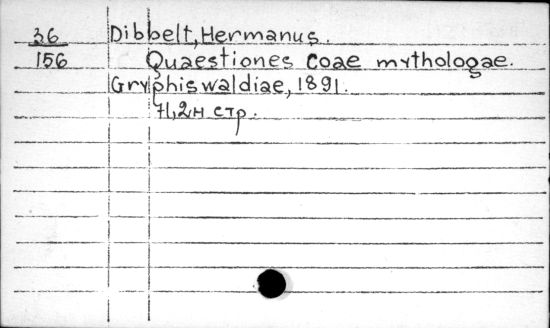 36 Dibbelt, Hermanus.
156 Quaestiones Coae mythologae.
Gryphiswaldiae, 1891.
71, 2н стр.